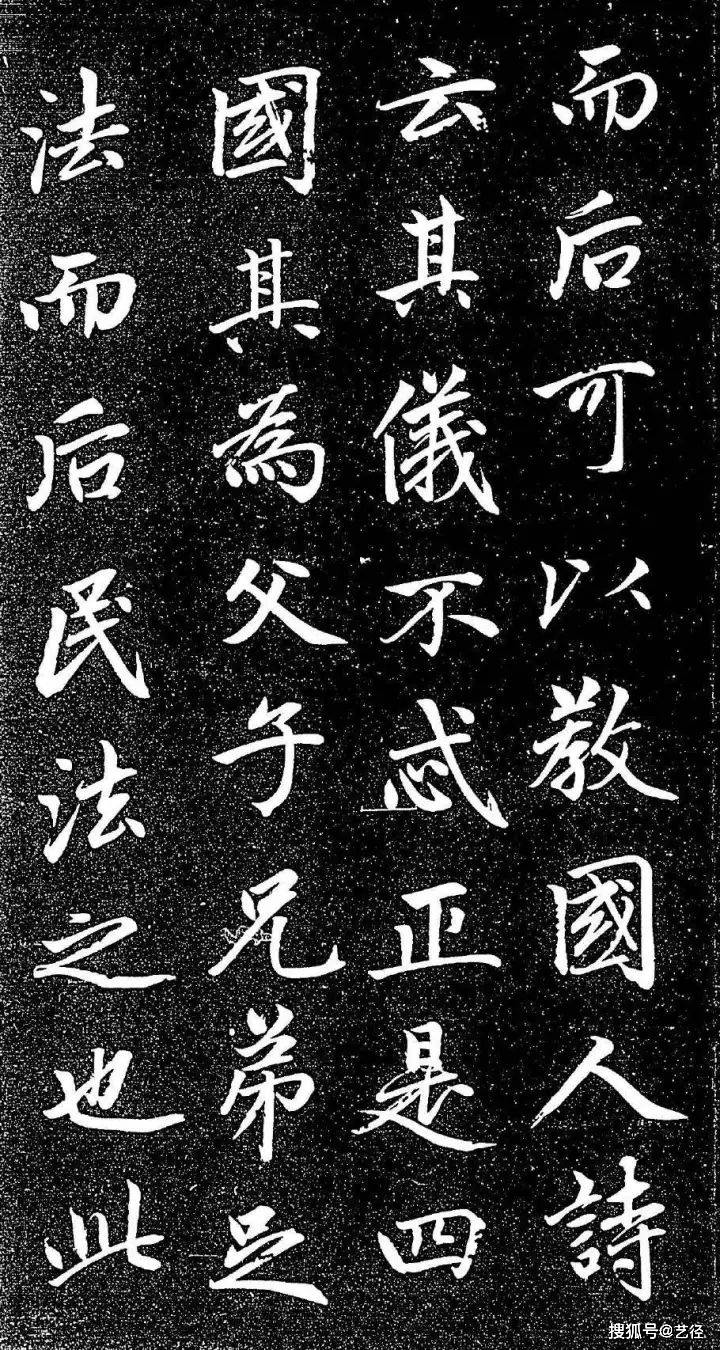 而后可以教國人詩
云其儀不忒正是四
國其為父子兄弟足
法而后民法之也此
搜狐号@艺径